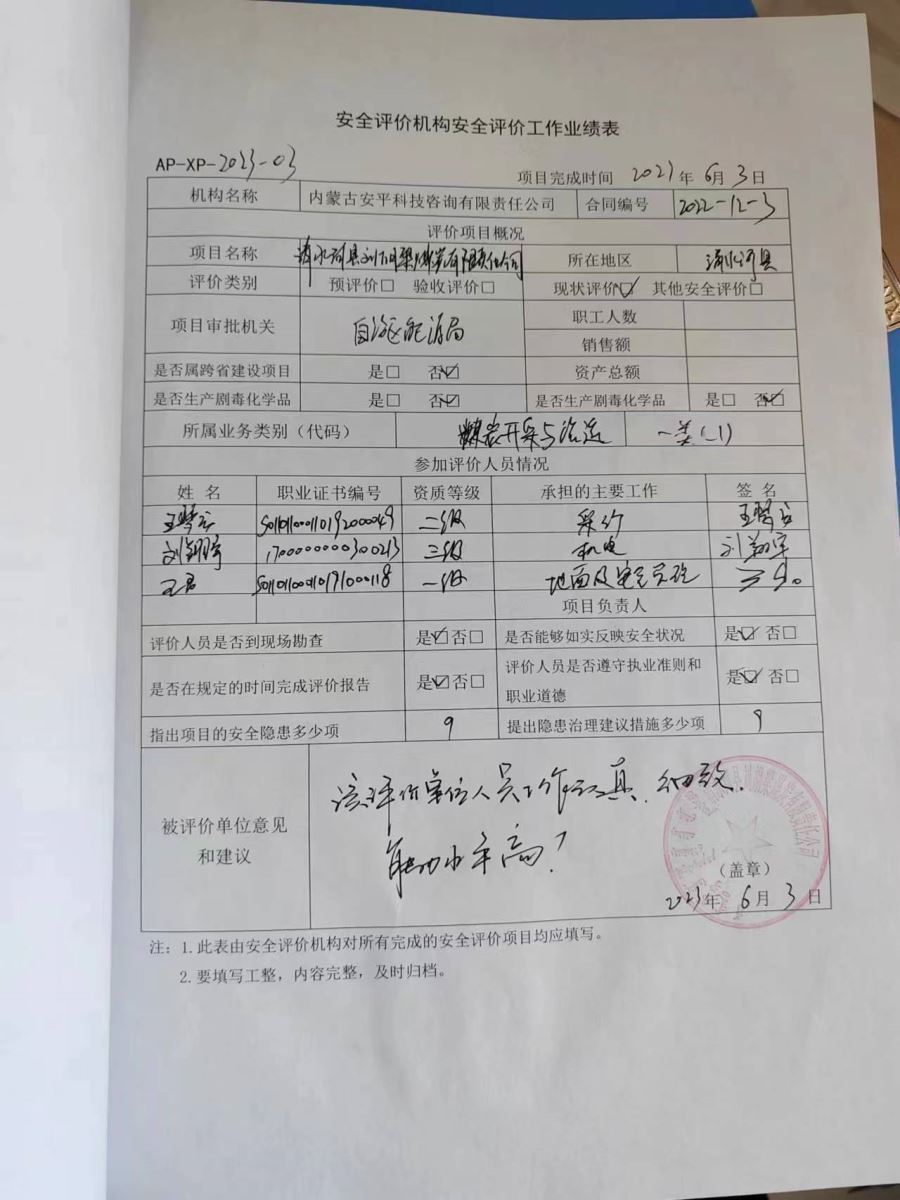 安全评价机构安全评价工作业绩表
AP-XP-2023-03
项目完成时间 2023年6月3日
机构名称 内蒙古安平科技咨询有限责任公司 合同编号 2022-12-3
评价项目概况
项目名称 清水河县刘胡梁煤炭有限责任公司 所在地区 清水河县
评价类别 预评价□ 验收评价□ 现状评价☑ 其他安全评价□
项目审批机关 自治区能源局 职工人数
销售额
是否属跨省建设项目 是□ 否☑ 资产总额
是否生产剧毒化学品 是□ 否☑ 是否生产剧毒化学品 是□ 否☑
所属业务类别（代码） 煤炭开采与洗选 一类(1)
参加评价人员情况
姓 名 职业证书编号 资质等级 承担的主要工作 签 名
S011011000110192000049 二级
刘翔宇 1700000000300213 三级 机电 刘翔宇
王君 S011011000110191000118 一级 地面及安全
项目负责人
评价人员是否到现场勘查 是☑否□ 是否能够如实反映安全状况 是☑ 否□
是否在规定的时间完成评价报告 是☑否□ 评价人员是否遵守执业准则和
职业道德 是☑ 否□
指出项目的安全隐患多少项 9 提出隐患治理建议措施多少项 9
被评价单位意见
和建议
该评价单位人员工作认真、细致，
水平高！
（盖章）
2023年6月3日
注：1.此表由安全评价机构对所有完成的安全评价项目均应填写。
2.要填写工整，内容完整，及时归档。